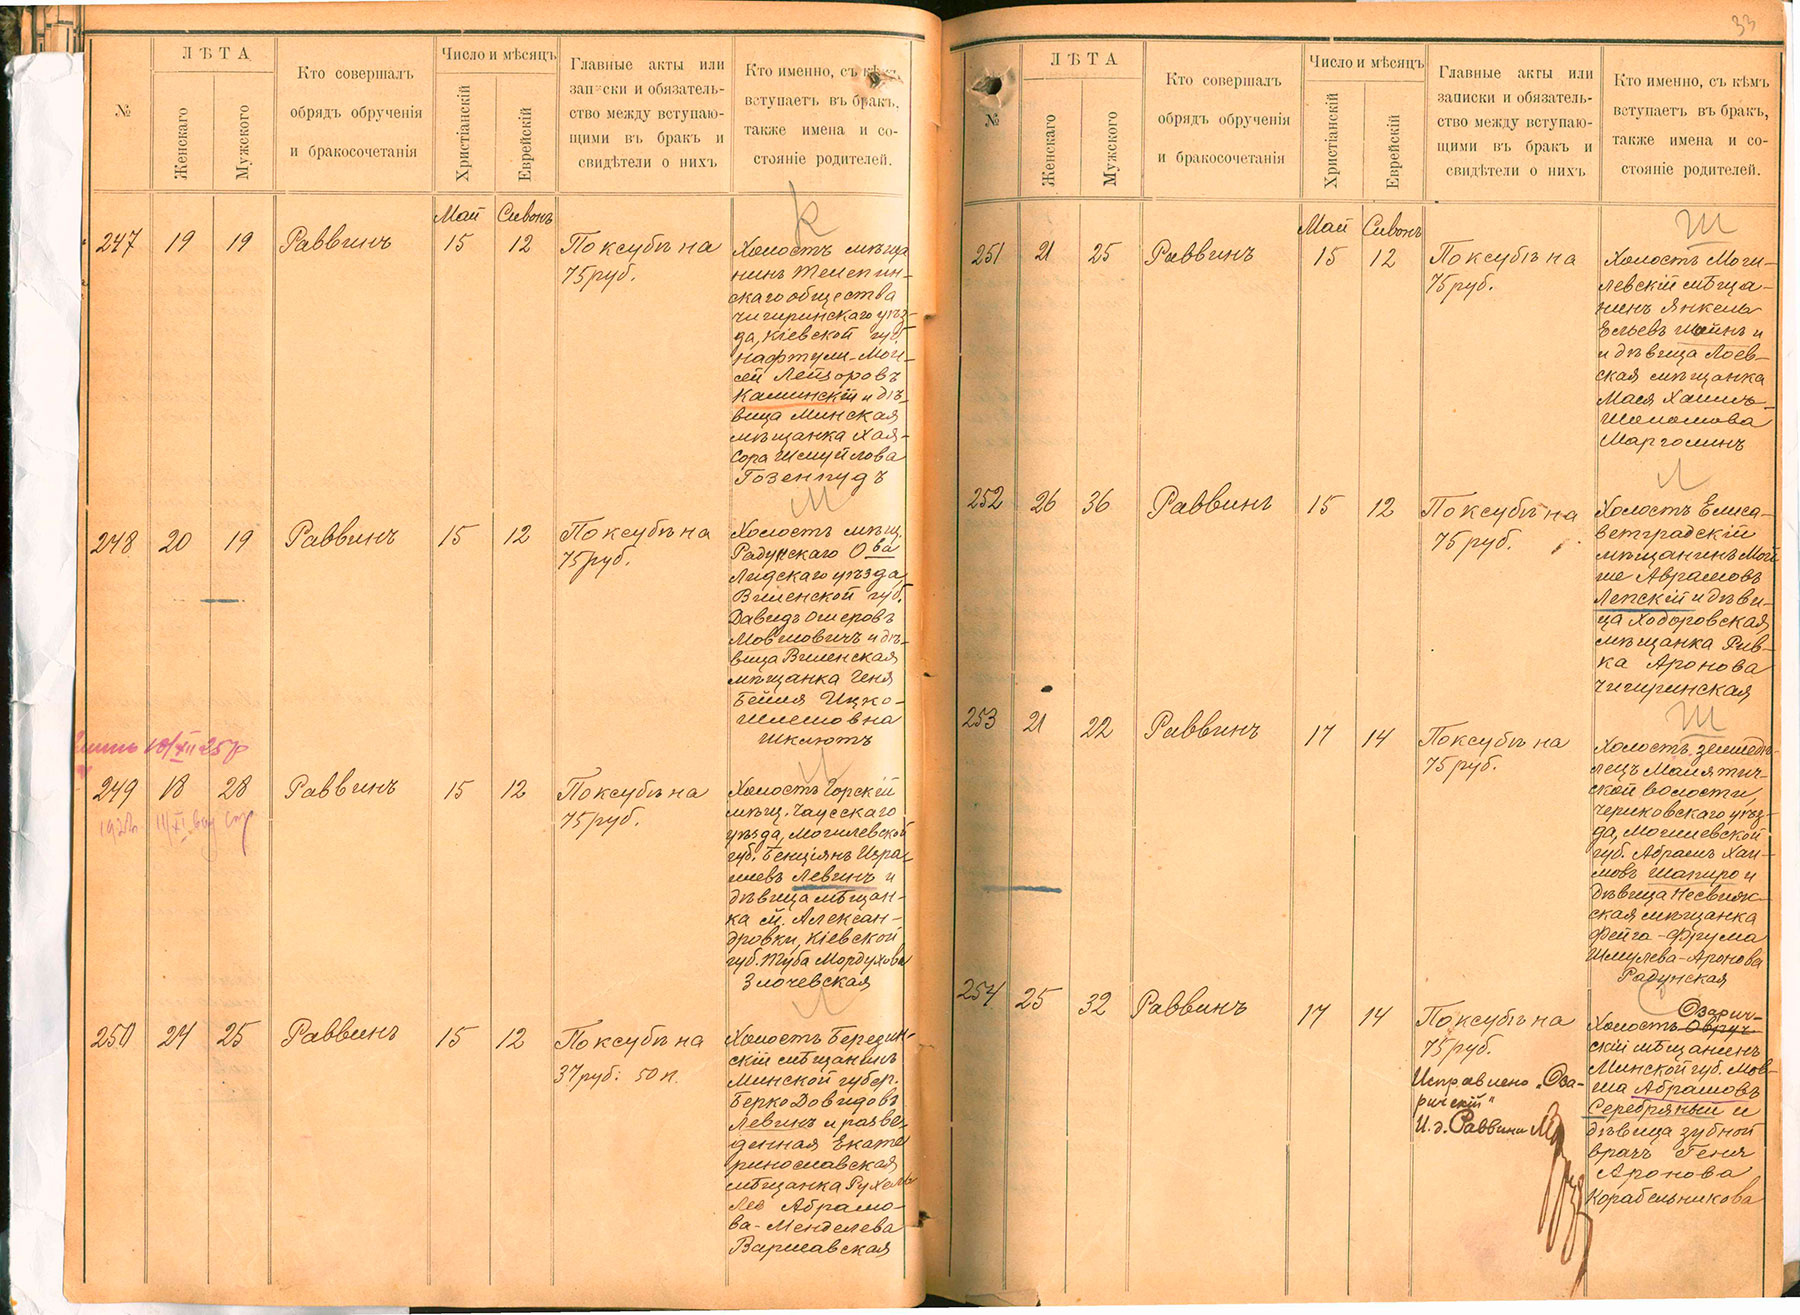 33
№
ЛѢТА
Женскаго
Мужского
Кто совершалъ
обрядъ обрученія
и бракосочетанія
Число и мѣсяцъ
Христіанскій
Еврейскій
Главные акты или
записки и обязатель-
ство между вступаю-
щими въ бракъ и
свидѣтели о нихъ
Кто именно, съ кѣмъ
вступаетъ въ бракъ,
также имена и со-
стояніе родителей.
К
Май Сивонъ
247 19 19 Раввинъ 15 12 По ксубѣ на
75 руб.
Холостъ мѣща
нинъ Телепин-
скаго общества
Чигиринскаго уѣз-
да, Кіевской губ.
Нафтули-Мои-
сей Лейзоровъ
Каминскій и дѣ-
вица Минская
мѣщанка Хая-
Сора Шмуйлова
Гозенпудъ
М
248 20 19 Раввинъ 15 12 По ксубѣ на
75 руб.
Холостъ мѣщ.
Радунскаго О-ва
Лидскаго уѣзда
Виленской губ.
Давидъ Ошеровъ
Мовшовичъ и дѣ-
вица Виленская
мѣщанка Геня
Бейля Ицко-
Шлемовна
Шклютъ
249 18 28 Раввинъ 15 12 По ксубѣ на
75 руб.
Холостъ Горскій
мѣщ. Чаусскаго
уѣзда, Могилевской
губ. Бенціянъ Изра-
илевъ Левинъ и
дѣвица мѣщан-
ка м. Алексан-
дровки, Кіевской
губ. Туба Мордухова
Злочевская
250 24 25 Раввинъ 15 12 По ксубѣ на
37 руб. 50 к.
Холостъ Березин-
скій мѣщанинъ
Минской губер.
Берко Довидовъ
Левинъ и разве-
денная Екате
ринославская
мѣщанка Рухель
Лея Абрамо-
ва-Менделева
Варшавская
№
ЛѢТА
Женскаго
Мужского
Кто совершалъ
обрядъ обрученія
и бракосочетанія
Число и мѣсяцъ
Христіанскій
Еврейскій
Главные акты или
записки и обязатель-
ство между вступаю-
щими въ бракъ и
свидѣтели о нихъ
Кто именно, съ кѣмъ
вступаетъ въ бракъ,
также имена и со-
стояніе родителей.
Ш
Май Сивонъ
251 21 25 Раввинъ 15 12 По ксубѣ на
75 руб.
Холостъ Моги-
левскій мѣща-
нинъ Янкель
Ельевъ Шейнъ и
и дѣвица Лоев-
ская мѣщанка
Мася Хаимъ-
Шоломова
Марголинъ
Л
252 26 36 Раввинъ 15 12 По ксубѣ на
75 руб.
Холостъ Елиса-
ветградскій
мѣщанинъ Мой
ше Аврамовъ
Лепскій и дѣви-
ца Ходоровская
мѣщанка Рив-
ка Аронова
Чигиринская
Ш
253 21 22 Раввинъ 17 14 По ксубѣ на
75 руб.
Холостъ земледѣ-
лецъ Малятич-
ской волости,
Чериковскаго уѣз-
да, Могилевской
губ. Абрамъ Хаи-
мовъ Шапиро и
дѣвица Несвиж-
ская мѣщанка
Фейга-Фрума
Шмулева-Аронова
Радунская
С
254 25 32 Раввинъ 17 14 По ксубѣ на
75 руб.
Исправлено „Оза-
ричскій“
И.д. Раввина
Озарич-
Холостъ Овруч-
скій мѣщанинъ
Минской губ. Мов-
ша Абрамовъ
Серебряный и
дѣвица зубной
врачъ Геня
Аронова
Корабельникова